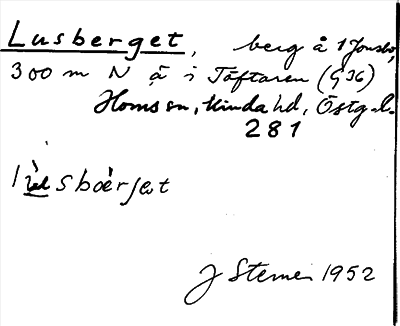 Lusberget, berg å 1 Jonsbo,
300 m N ä i Töftaren (G36)
Horns sn, Kinda hd, Östg. l.
281
lùsbær̀jet
J Sterner 1952